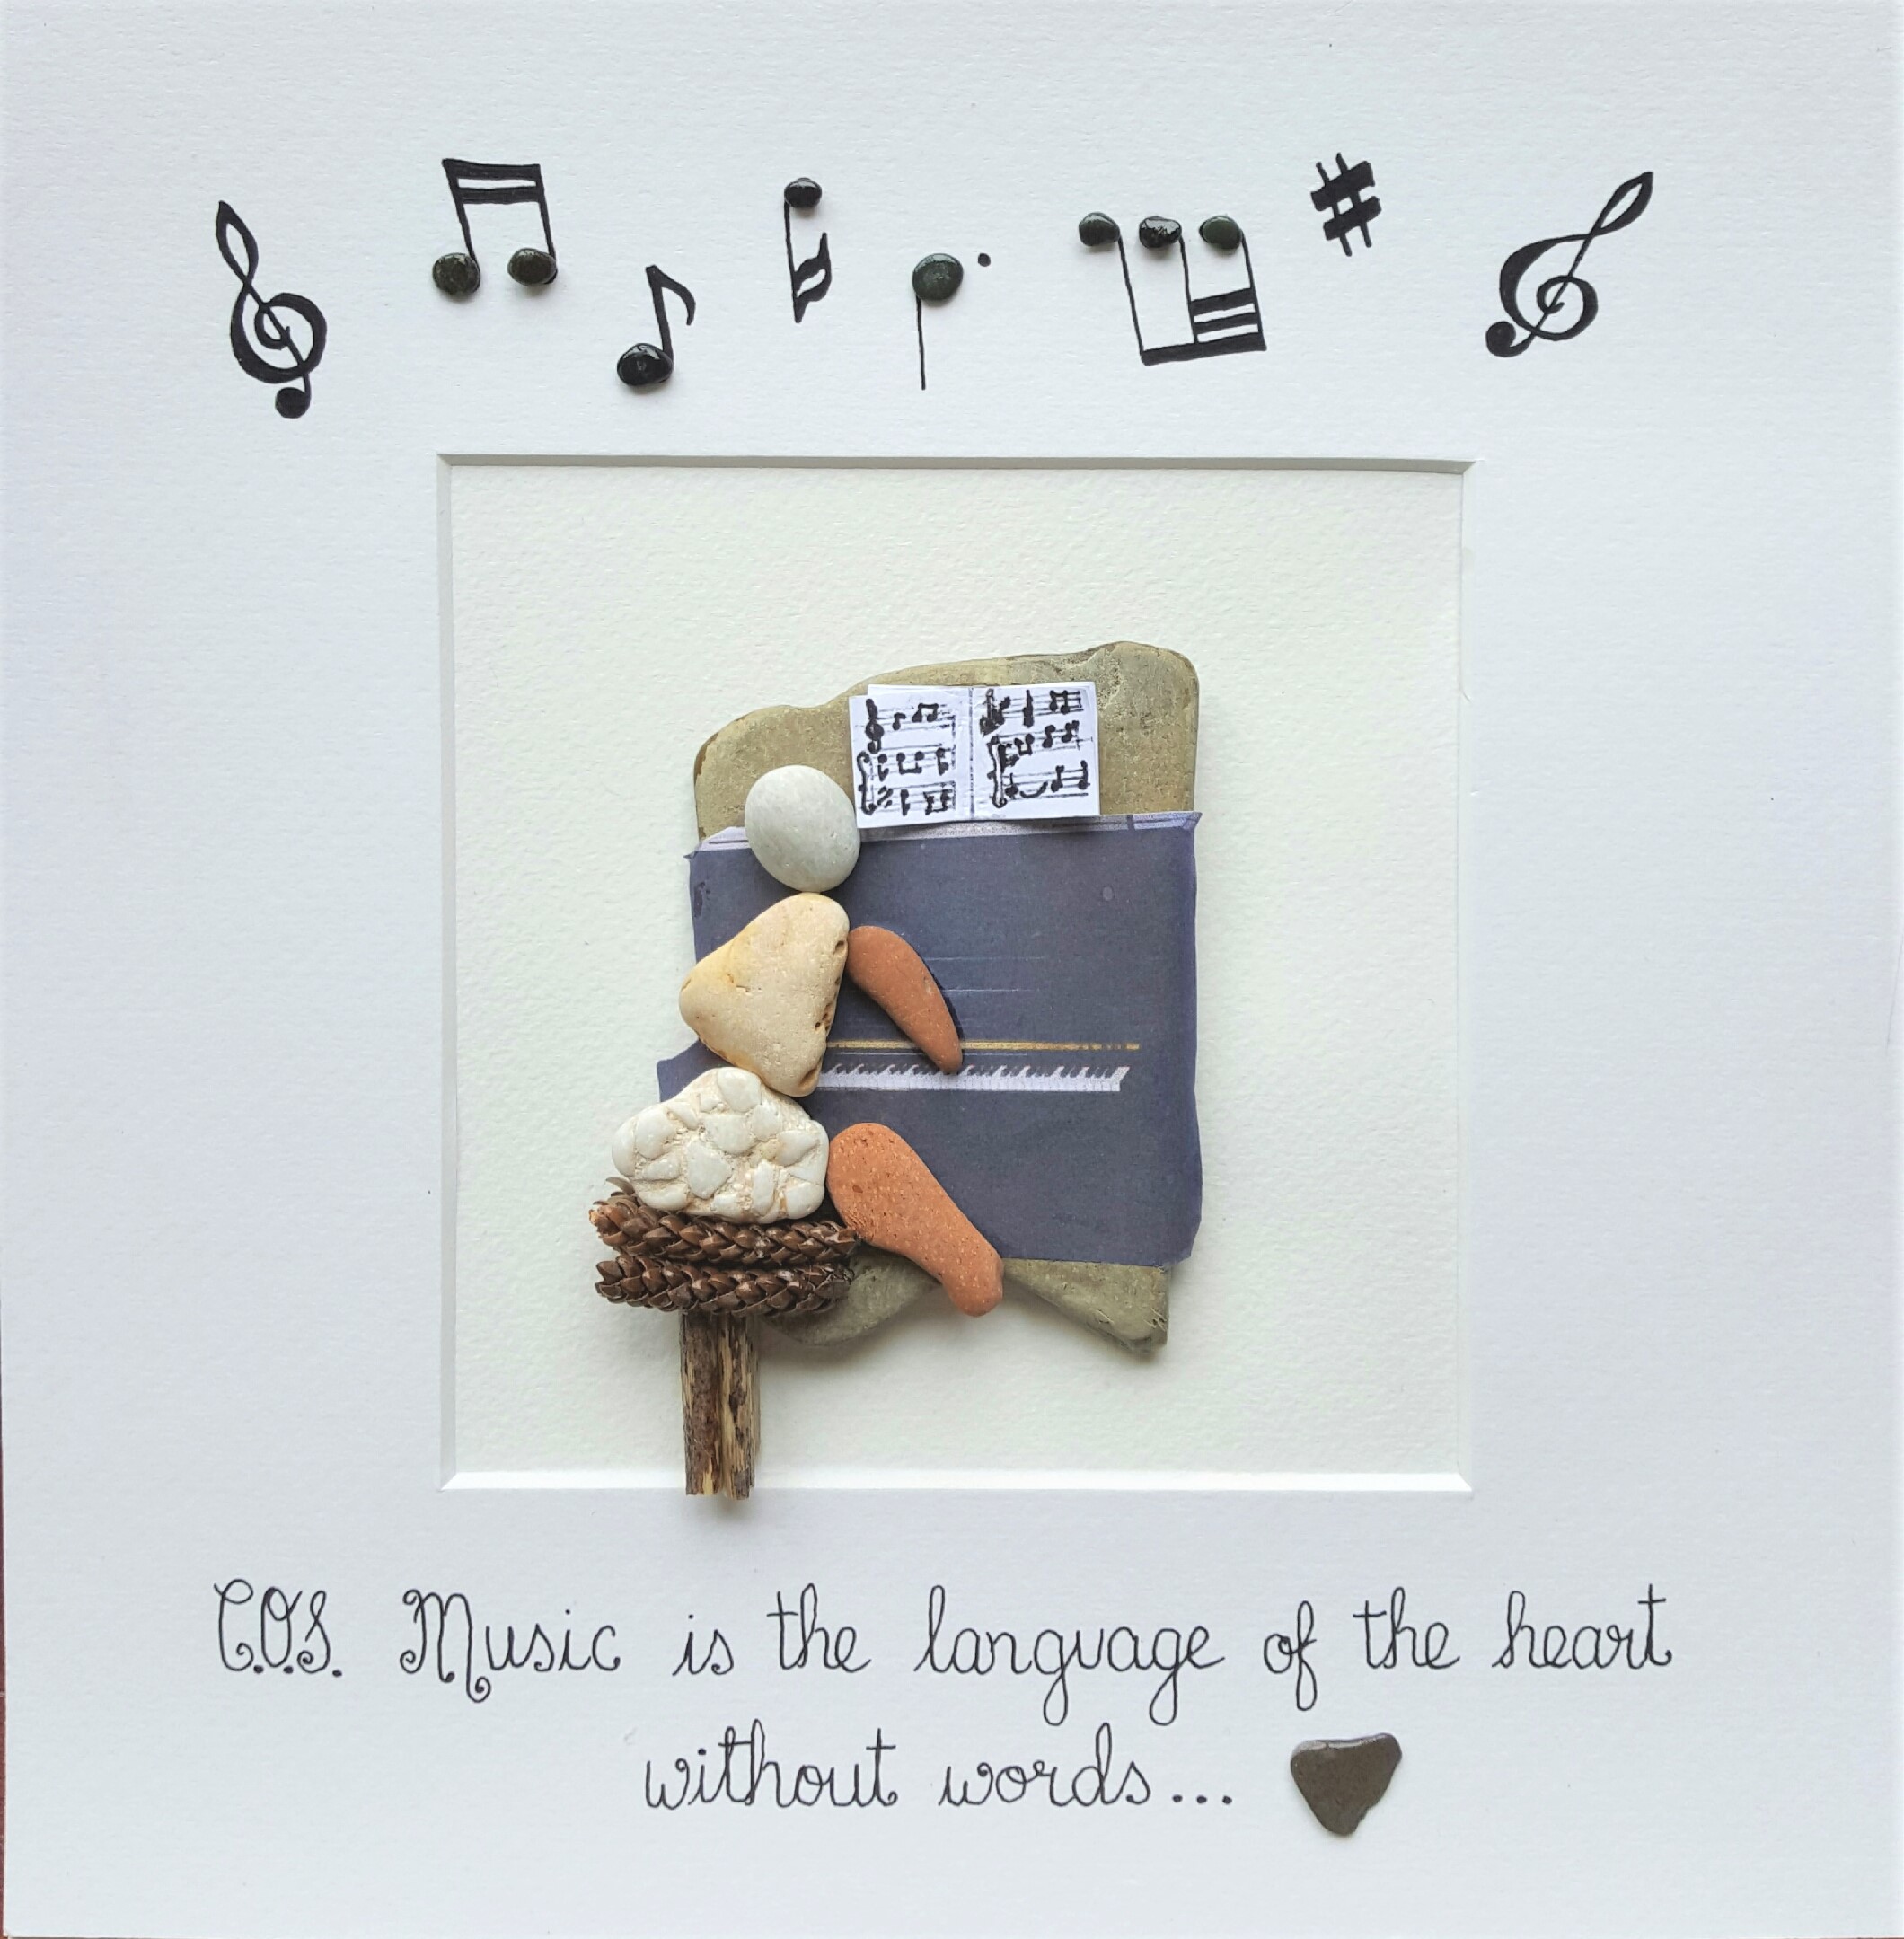 C.O.S. Music is the language of the heart
without words...